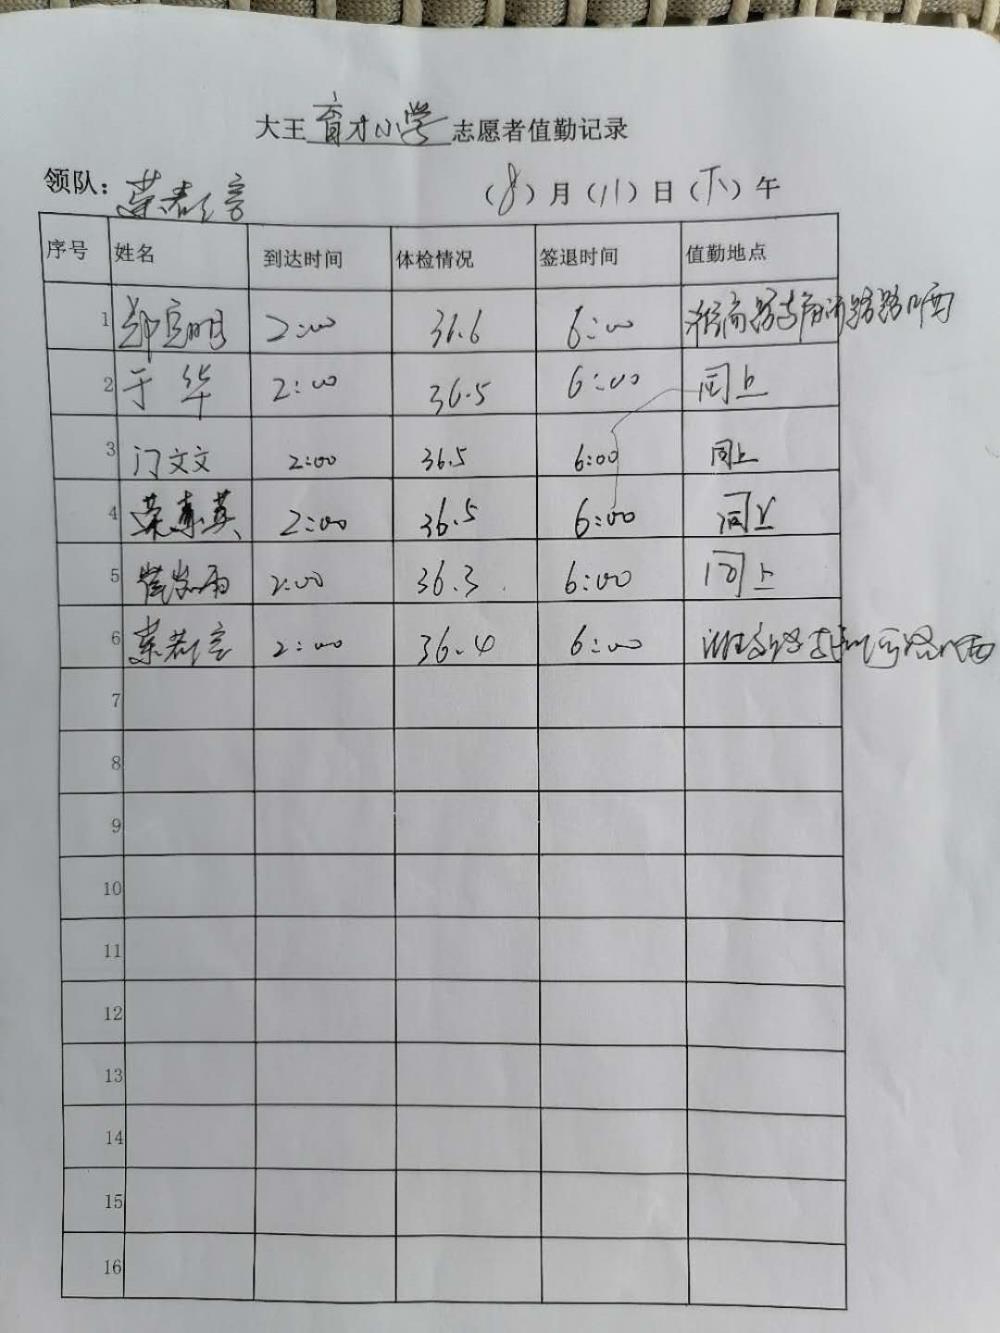 大王育才小学志愿者值勤记录
领队： （8）月（11）日（下）午
序号 姓名 到达时间 体检情况 签退时间 值勤地点
1 2:00 36.6 6:00
2 于华 2:00 36.5 6:00 同上
3 门文文 2:00 36.5 6:00 同上
4 荣素英 2:00 36.5 6:00 同上
5 2:00 36.3 6:00 同上
6 2:00 36.4 6:00
7
8
9
10
11
12
13
14
15
16